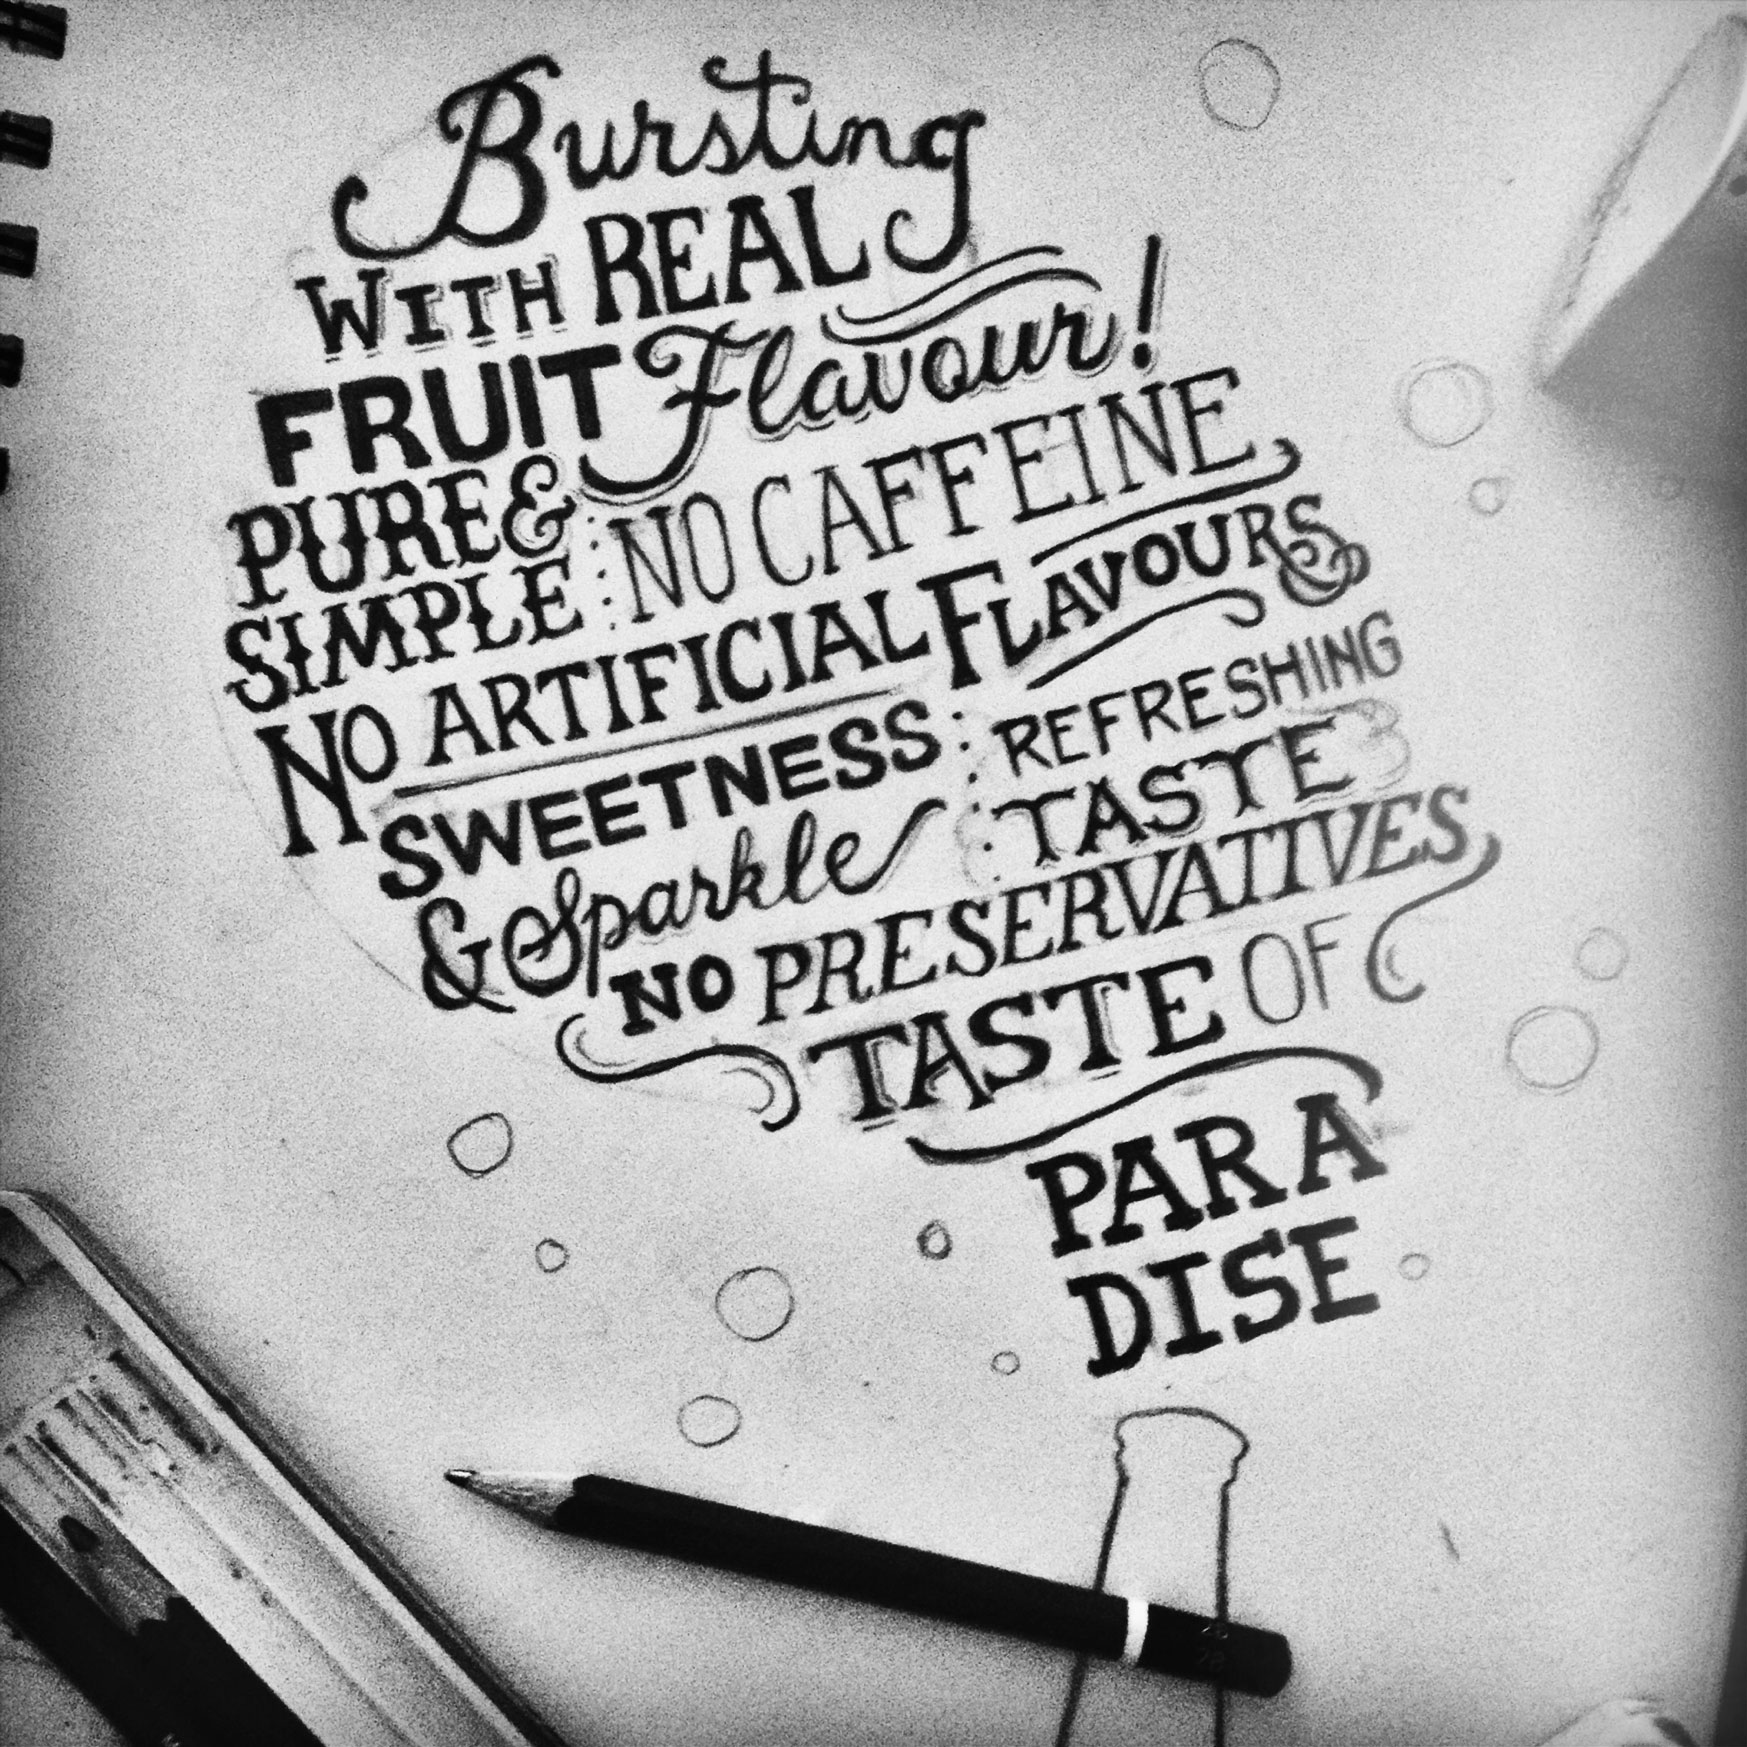 Bursting
WITH REAL
FRUIT Flavour!
PURE &
SIMPLE : NO CAFFEINE
NO ARTIFICIAL FLAVOURS
SWEETNESS : REFRESHING
& Sparkle : TASTE
NO PRESERVATIVES
TASTE OF
PARA
DISE